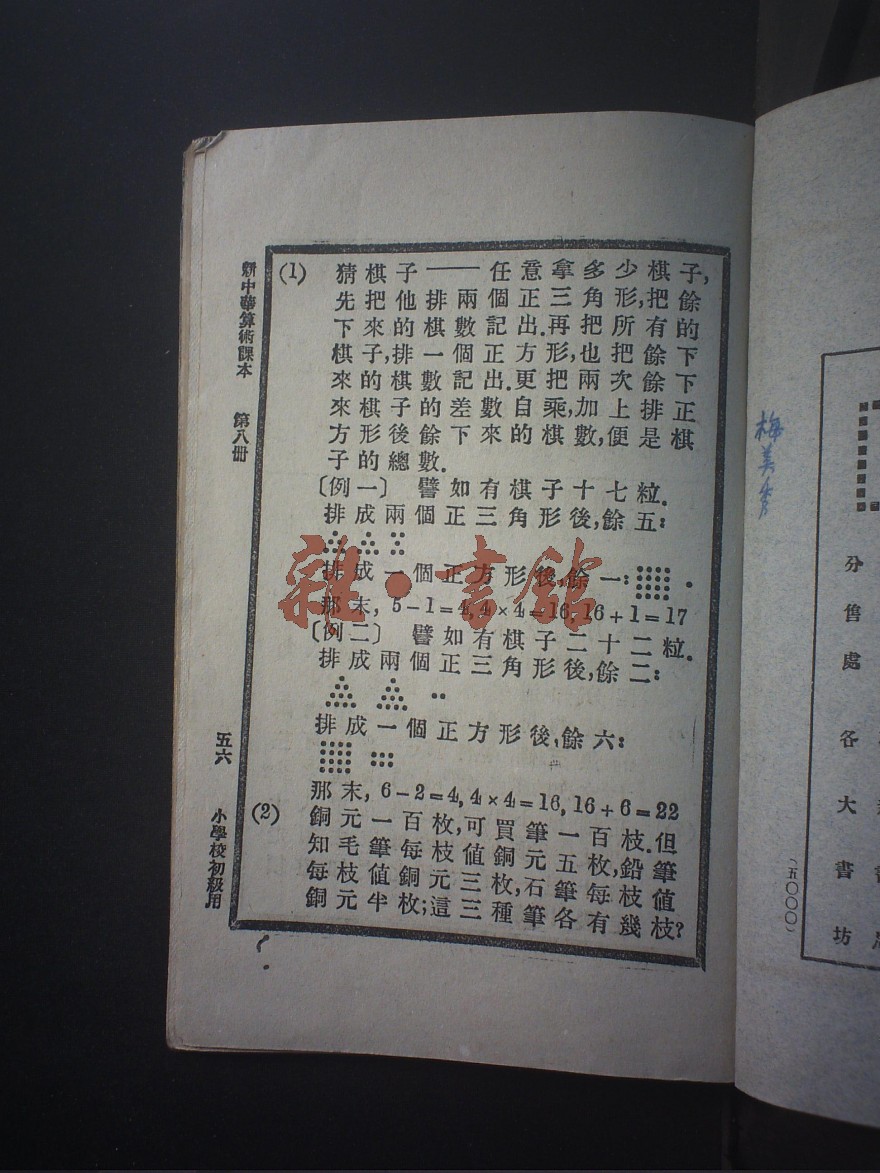 新中華算術課本 第八冊 五六 小學校初級用
(1) 猜棋子——任意拿多少棋子,
先把棋子他排兩個正三角形,把餘
下來的棋數記出.再把所有的
棋子,排一個正方形,也把餘下
來的棋數記出.更把兩次餘下
來棋子的差數自乘,加上排正
方形後餘下來的棋數,便是棋
子的總數.
〔例一〕 譬如有棋子十七粒.
排成兩個正三角形後,餘五:
排成一個正方形後,餘一:
那末, 5-1=4, 4×4=16, 16+1=17
〔例二〕 譬如有棋子二十二粒.
排成兩個正三角形後,餘二:
排成一個正方形後,餘六:
那末, 6-2=4, 4×4=16, 16+6=22
(2) 銅元一百枚,可買筆一百枝.但
知毛筆每枝值銅元五枚,鉛筆
每枝值銅元三枚,石筆每枝值
銅元半枚;這三種筆各有幾枝?
雜·書館
梅美秀
分售處 各大書坊
(五〇〇〇)